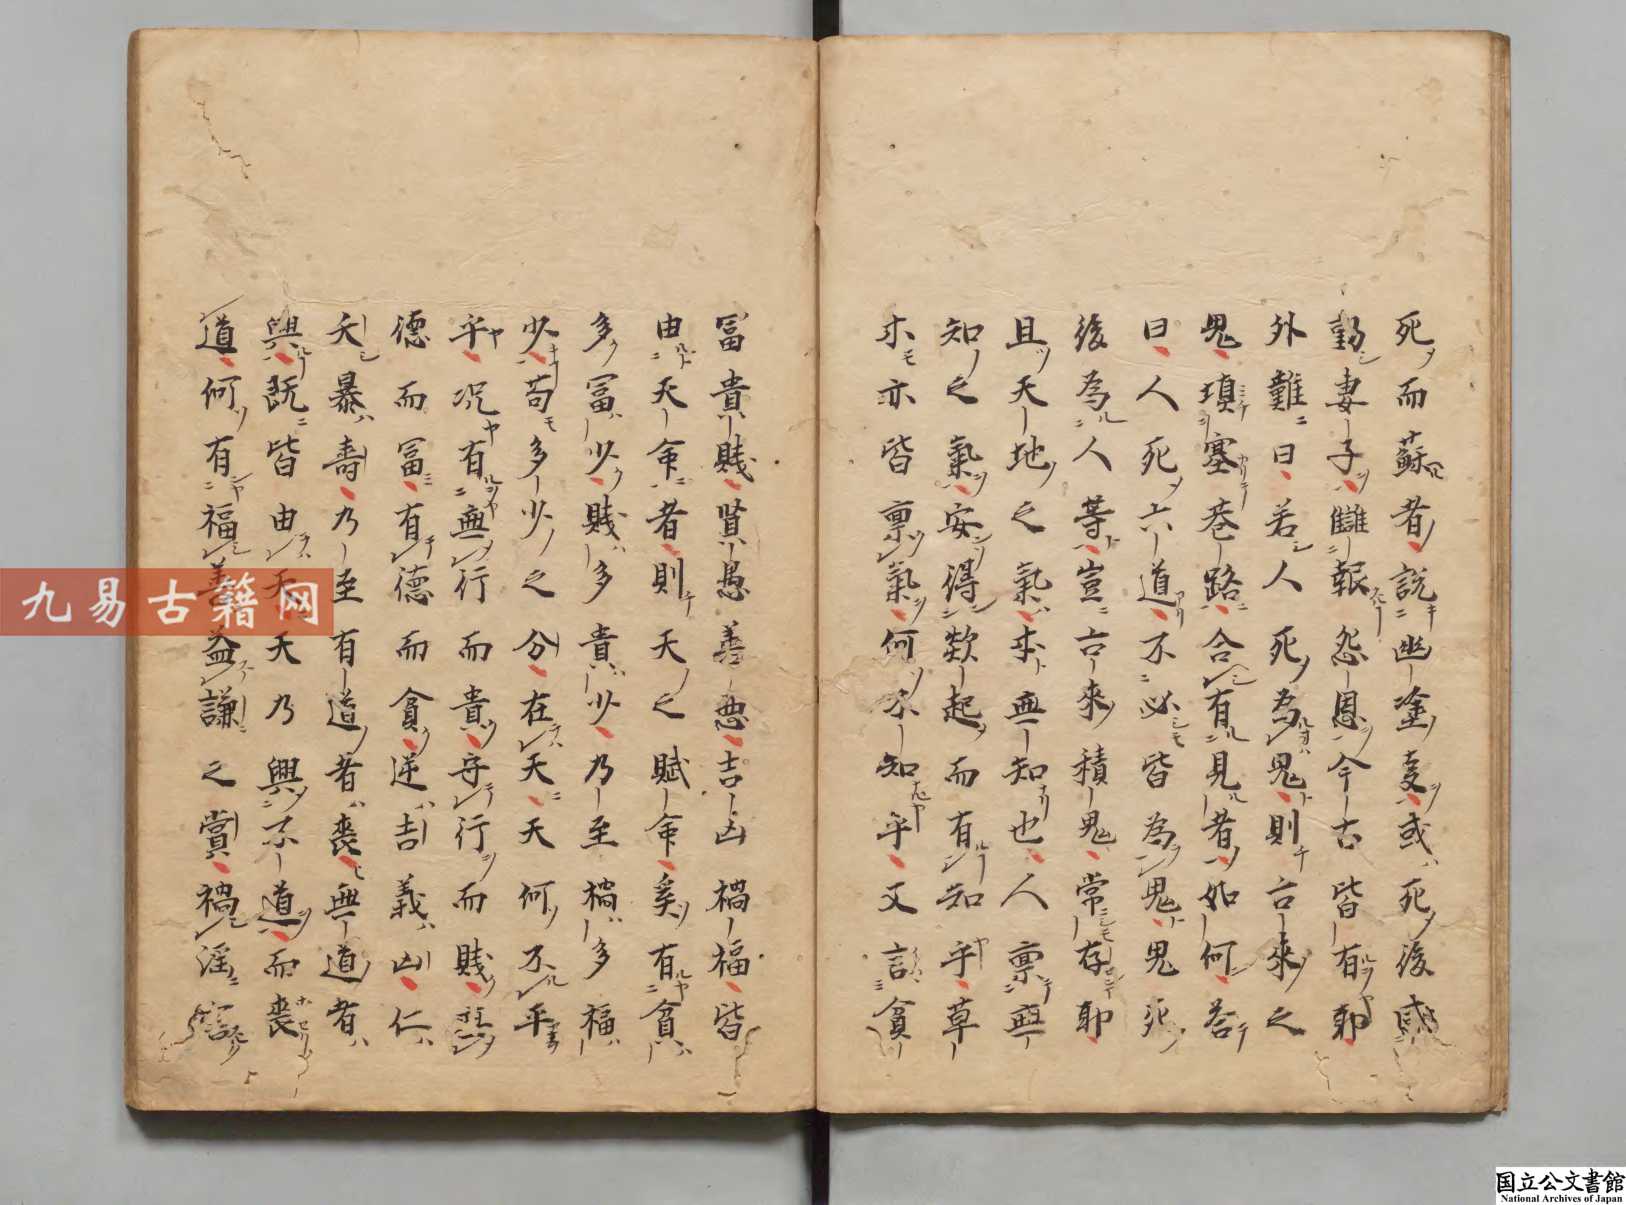 死而蘇者説幽塗事或死後感
動妻子讎報怨恩今古皆有耶
外難曰若人死為鬼則古來之
鬼填塞巷路合有見者如何荅
曰人死六道不必皆為鬼鬼死
後為人等豈古來積鬼常存耶
且天地之氣本無知也人禀無
知之氣安得欻起而有知乎草
木亦皆禀氣何不知乎又言貧
冨貴賤賢愚善惡吉凶禍福皆
由天命者則天之賦命奚有貧
多冨少賤多貴少乃至禍多福
少苟多少之分在天天何不平
乎况有無行而貴守行而賤無
德而冨有德而貧逆吉義凶仁
夭暴壽乃至有道者喪無道者
興既皆由天天乃興不道而喪
道何有福善益謙之賞禍淫害
九易古籍网
国立公文書館
National Archives of Japan